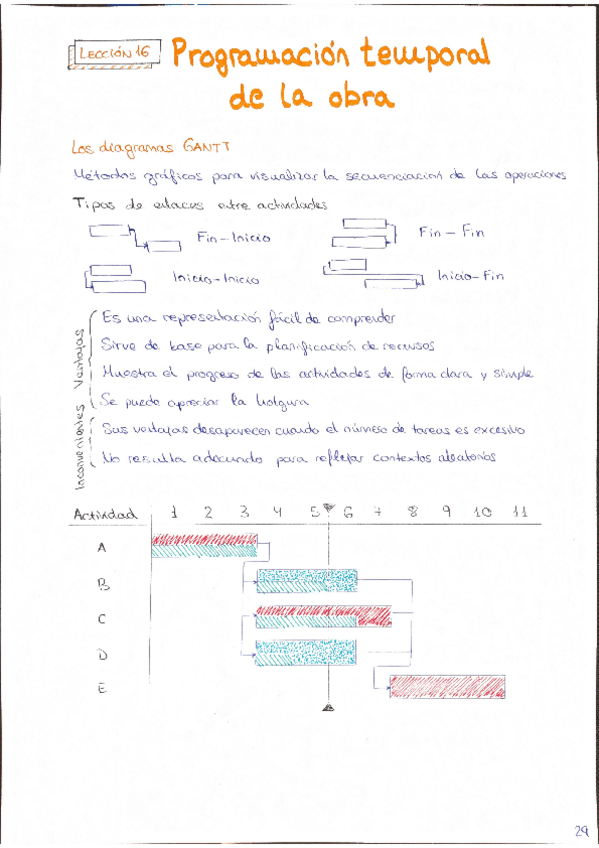 LECCIÓN 16
Programación temporal
de la obra
Los diagramas GANTT
Métodos gráficos para visualizar la secuenciación de las operaciones
Tipos de enlaces entre actividades
Fin-Inicio
Fin-Fin
Inicio-Inicio
Inicio-Fin
Ventajas
Es una representación fácil de comprender
Sirve de base para la planificación de recursos
Muestra el progreso de las actividades de forma clara y simple
Se puede apreciar la holgura
Inconvenientes
Sus ventajas desaparecen cuando el número de tareas es excesivo
No resulta adecuado para reflejar contextos aleatorios
Actividad 1 2 3 4 5 6 7 8 9 10 11
A
B
C
D
E
29